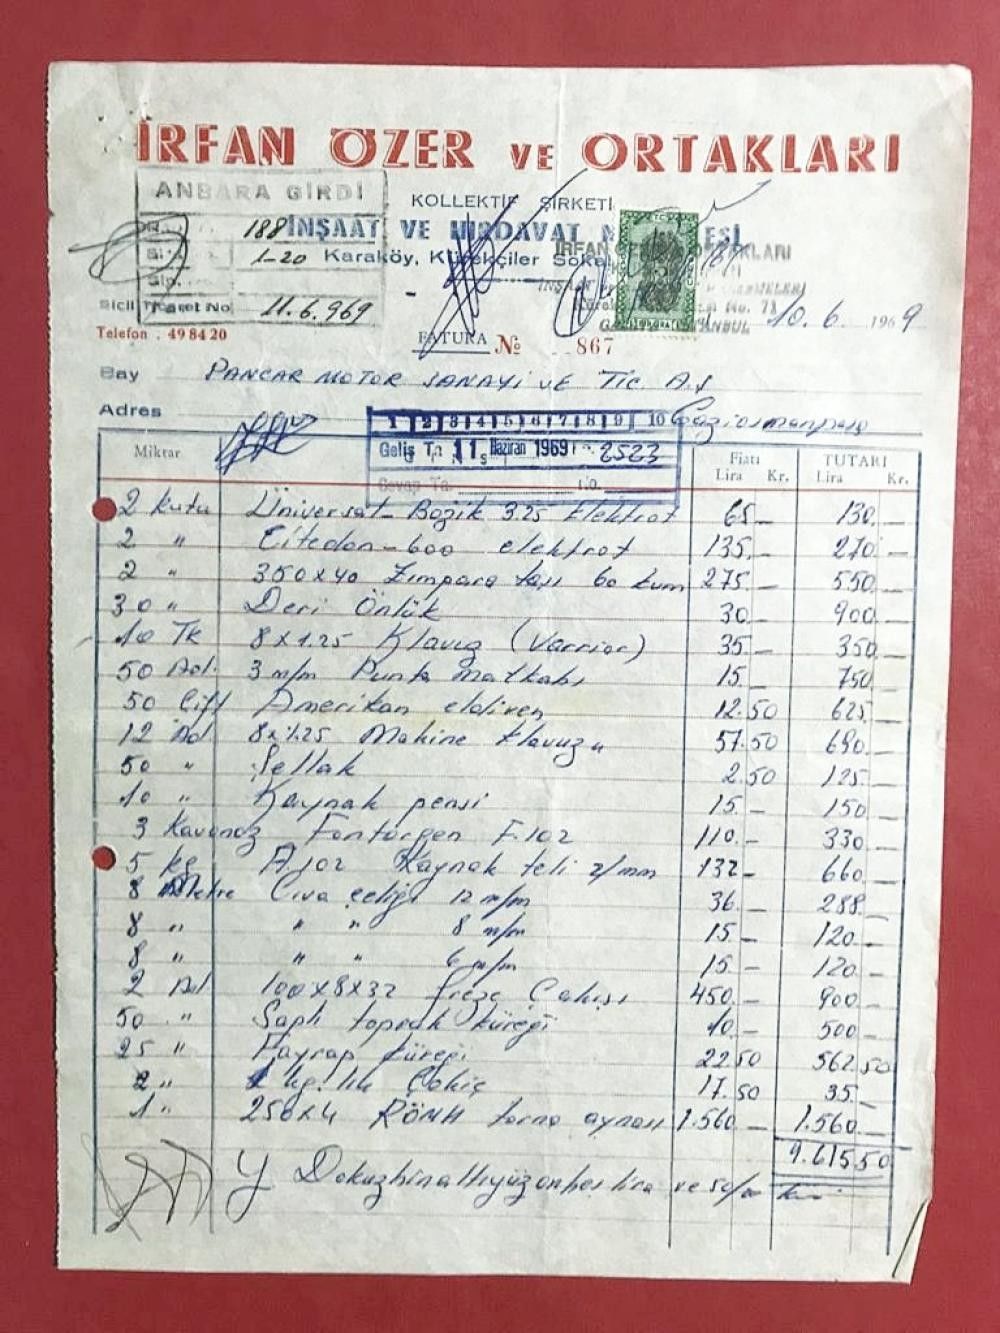 İRFAN ÖZER VE ORTAKLARI
KOLLEKTİF ŞİRKETİ
İNŞAAT VE HIRDAVAT
Karaköy, Kürekçiler
ANBARA GİRDİ
188
1-20
11.6.969
Sicil Ticaret No
Telefon : 49 84 20
FATURA No 867
No. 71
10.6.1969
Bay PANCAR MOTOR SANAYİ VE TİC. A.Ş
Adres Gaziosmanpaşa
1 2 3 4 5 6 7 8 9 10
Geliş Ta 11 Haziran 1969 2523
Cevap Ta.
Miktar Fiatı TUTARI
Lira Kr. Lira Kr.
2 Kutu Üniversal-Bazik 3.25 Elektrot 65.- 130.-
2 " Citedon-600 elektrot 135.- 270.-
2 " 350x40 Zımpara taşı 60 kum 275.- 550.-
30 " Deri Önlük 30.- 900.-
10 Tk 8x1.25 Klavuz (Varrior) 35.- 350.-
50 Ad. 3 m/m Punta matkabı 15.- 750.-
50 Çift Amerikan eldiven 12.50 625.-
12 Ad 8x1.25 Makine klavuzu 57.50 690.-
50 " Şellak 2.50 125.-
10 " Kaynak pensi 15.- 150.-
3 Kavanoz Fontargen F.102 110.- 330.-
5 kg A102 Kaynak teli 2/mm 132- 660.-
8 Metre Cıva çeliği 12 m/m 36.- 288.-
8 " " " 8 m/m 15.- 120.-
8 " " " 6 m/m 15.- 120.-
2 Ad. 100x8x32 freze Çakısı 450.- 900.-
50 " Saplı toprak küreği 10.- 500.-
25 " Fayrap küreği 22.50 562.50
2 " kg.lık Çekiç 17.50 35.-
1 " 250x4 RÖHM torna aynası 1.560.- 1.560.-
9.615.50
Y Dokuzbinaltıyüzonbeş lira ve 50/00